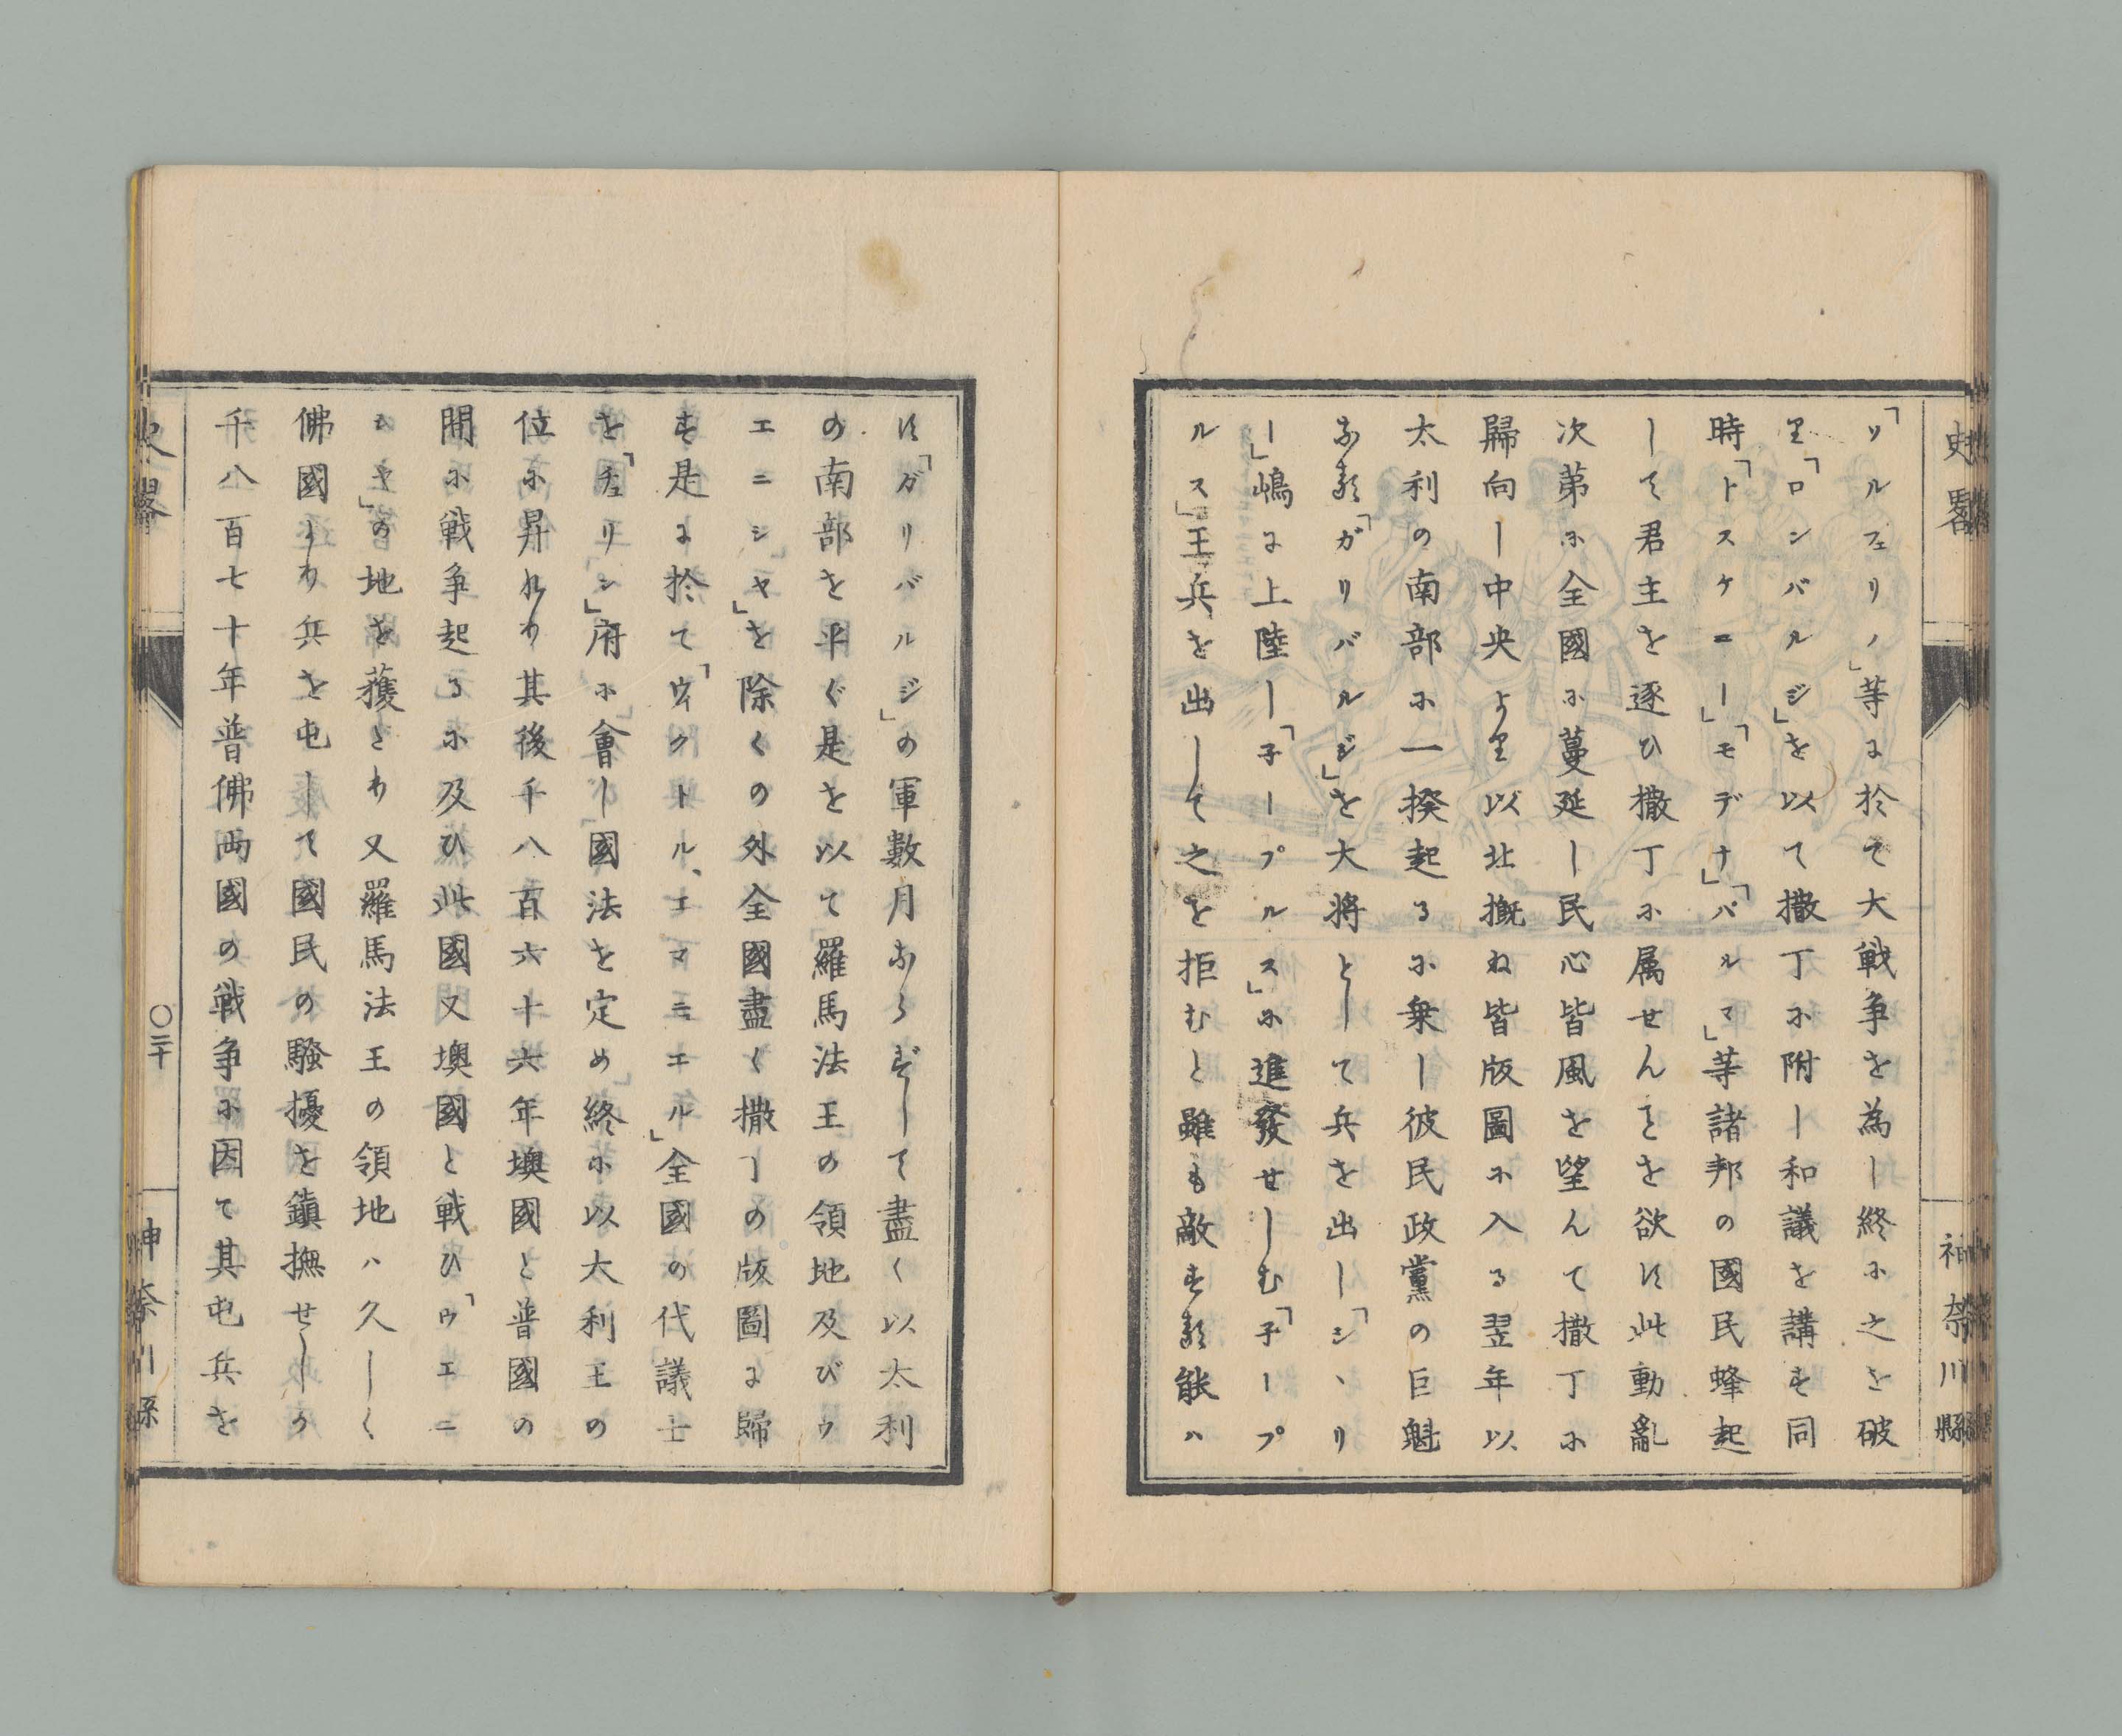 史畧
神奈川縣
「ソルフェリノ」等に於て大戦争を為し終に之を破
り「ロンバルジ」を以て撒丁に附し和議を講す同
時「トスケニー」「モデナ」「パルマ」等諸邦の國民蜂起
して君主を逐ひ撒丁に属せんことを欲す此動亂
次第に全國に蔓延し民心皆風を望んて撒丁に
歸向し中央より以北概ね皆版圖に入る翌年以
太利の南部に一揆起るに乗し彼民政黨の巨魁
なる「ガリバルジ」を大将として兵を出し「シヽリ
ー」嶋に上陸し「子ープルス」に進發せしむ「子ープ
ルス」王兵を出して之を拒むと雖も敵する能ハ
す「ガリバルジ」の軍數月ならずして盡く以太利
の南部を平ぐ是を以て羅馬法王の領地及びウ
エニシヤ」を除くの外全國盡く撒丁の版圖に歸
す是に於て「ヴィクトル、エマニエル」全國の代議士
を「チュリン」府に會し國法を定め終に以太利王の
位に昇れり其後千八百六十六年墺國と普國の
間に戦争起るに及ひ此國又墺國と戦ひ「ウエニ
シヤ」の地を獲たり又羅馬法王の領地ハ久しく
佛國より兵を屯して國民の騒擾を鎮撫せしか
千八百七十年普佛両國の戦争に因て其屯兵を
史畧
〇三十
神奈川縣